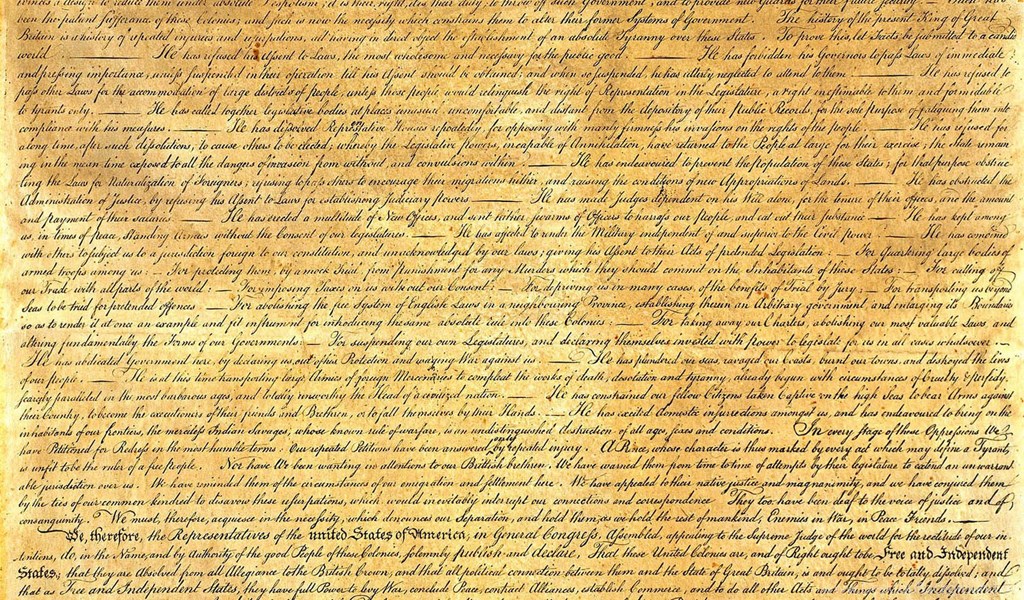 a design to reduce them under absolute Despotism, it is their right, it is their duty, to throw off such Government, and to provide new Guards for their future security.
been the patient sufferance of these Colonies; and such is now the necessity which constrains them to alter their former Systems of Government. The history of the present King of Great
Britain is a history of repeated injuries and usurpations, all having in direct object the establishment of an absolute Tyranny over these States. To prove this, let Facts be submitted to a candid
world. — He has refused his Assent to Laws, the most wholesome and necessary for the public good. — He has forbidden his Governors to pass Laws of immediate
and pressing importance, unless suspended in their operation till his Assent should be obtained; and when so suspended, he has utterly neglected to attend to them. — He has refused to
pass other Laws for the accommodation of large districts of people, unless those people would relinquish the right of Representation in the Legislature, a right inestimable to them and formidable
to tyrants only. — He has called together legislative bodies at places unusual, uncomfortable, and distant from the depository of their public Records, for the sole purpose of fatiguing them into
compliance with his measures. — He has dissolved Representative Houses repeatedly, for opposing with manly firmness his invasions on the rights of the people. — He has refused for
a long time, after such dissolutions, to cause others to be elected; whereby the Legislative powers, incapable of Annihilation, have returned to the People at large for their exercise; the State remain
ing in the mean time exposed to all the dangers of invasion from without, and convulsions within. — He has endeavoured to prevent the Population of these States; for that purpose obstruc
ting the Laws for Naturalization of Foreigners; refusing to pass others to encourage their migrations hither, and raising the conditions of new Appropriations of Lands. — He has obstructed the
Administration of Justice, by refusing his Assent to Laws for establishing Judiciary powers. — He has made Judges dependent on his Will alone, for the tenure of their offices, and the amount
and payment of their salaries. — He has erected a multitude of New Offices, and sent hither swarms of Officers to harrass our people, and eat out their substance. — He has kept among
us, in times of peace, Standing Armies without the Consent of our legislatures. — He has affected to render the Military independent of and superior to the Civil power. — He has combined
with others to subject us to a jurisdiction foreign to our constitution, and unacknowledged by our laws; giving his Assent to their Acts of pretended Legislation: — For Quartering large bodies of
armed troops among us: — For protecting them, by a mock Trial, from punishment for any Murders which they should commit on the Inhabitants of these States: — For cutting off
our Trade with all parts of the world: — For imposing Taxes on us without our Consent: — For depriving us in many cases, of the benefits of Trial by jury: — For transporting us beyond
Seas to be tried for pretended offences — For abolishing the free System of English Laws in a neighbouring Province, establishing therein an Arbitrary government, and enlarging its Boundaries
so as to render it at once an example and fit instrument for introducing the same absolute rule into these Colonies: — For taking away our Charters, abolishing our most valuable Laws, and
altering fundamentally the Forms of our Governments: — For suspending our own Legislatures, and declaring themselves invested with power to legislate for us in all cases whatsoever. —
He has abdicated Government here, by declaring us out of his Protection and waging War against us. — He has plundered our seas, ravaged our Coasts, burnt our towns, and destroyed the lives
of our people. — He is at this time transporting large Armies of foreign Mercenaries to compleat the works of death, desolation and tyranny, already begun with circumstances of Cruelty & perfidy
scarcely paralleled in the most barbarous ages, and totally unworthy the Head of a civilized nation. — He has constrained our fellow Citizens taken Captive on the high Seas to bear Arms against
their Country, to become the executioners of their friends and Brethren, or to fall themselves by their Hands. — He has excited domestic insurrections amongst us, and has endeavoured to bring on the
inhabitants of our frontiers, the merciless Indian Savages, whose known rule of warfare, is an undistinguished destruction of all ages, sexes and conditions. In every stage of these Oppressions We
have Petitioned for Redress in the most humble terms: Our repeated Petitions have been answered only by repeated injury. A Prince, whose character is thus marked by every act which may define a Tyrant,
is unfit to be the ruler of a free people. Nor have We been wanting in attentions to our Brittish brethren. We have warned them from time to time of attempts by their legislature to extend an unwarrant
able jurisdiction over us. We have reminded them of the circumstances of our emigration and settlement here. We have appealed to their native justice and magnanimity, and we have conjured them
by the ties of our common kindred to disavow these usurpations, which, would inevitably interrupt our connections and correspondence. They too have been deaf to the voice of justice and of
consanguinity. We must, therefore, acquiesce in the necessity, which denounces our Separation, and hold them, as we hold the rest of mankind, Enemies in War, in Peace Friends. —
We, therefore, the Representatives of the united States of America, in General Congress, Assembled, appealing to the Supreme Judge of the world for the rectitude of our in
tentions, do, in the Name, and by Authority of the good People of these Colonies, solemnly publish and declare, That these United Colonies are, and of Right ought to be Free and Independent
States; that they are Absolved from all Allegiance to the British Crown, and that all political connection between them and the State of Great Britain, is and ought to be totally dissolved; and
that as Free and Independent States, they have full Power to levy War, conclude Peace, contract Alliances, establish Commerce, and to do all other Acts and Things which Independent